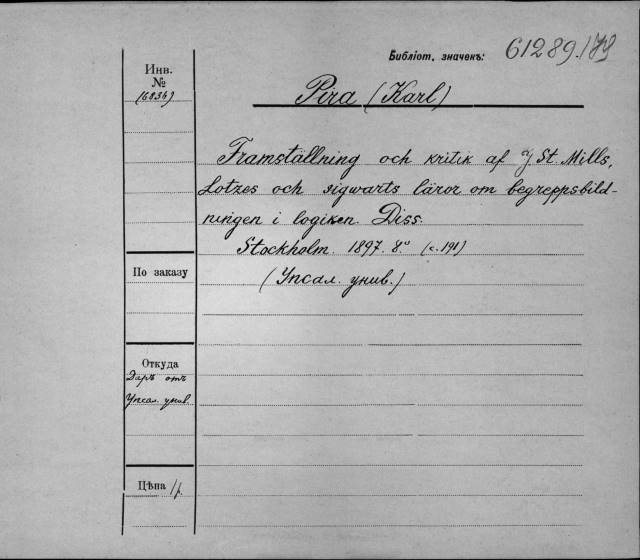 Библiот. значекъ: 61289.179
Инв.
№
(6836)
Pira (Karl)
Framställning och kritik af J. St. Mills,
Lotzes och sigwarts läror om begreppsbild-
ningen i logiken. Diss.
Stockholm. 1897. 8.° (с. 191)
(Упсал. унив.)
По заказу
Откуда
Даръ отъ
Упсал. унив.
Цѣна 1 р.